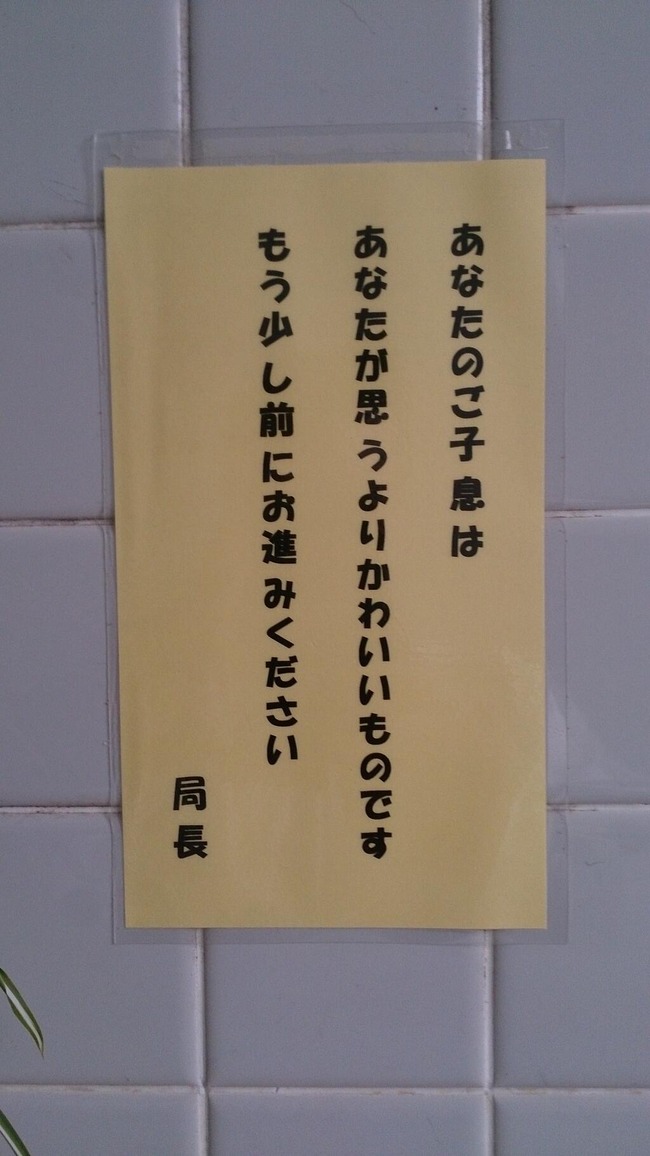 あなたのご子息は
あなたが思うよりかわいいものです
もう少し前にお進みください
局長